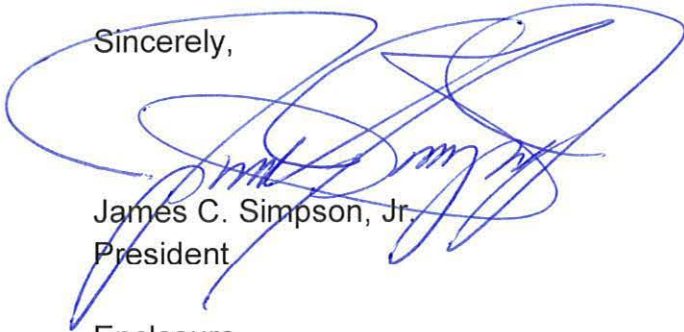 Sincerely,
James C. Simpson, Jr.
President
Enclosure